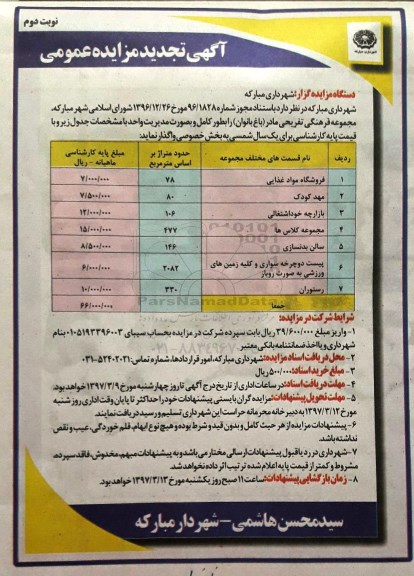 نوبت دوم
آگهی تجدید مزایده عمومی
دستگاه مزایده گزار: شهرداری مبارکه
شهرداری مبارکه در نظر دارد باستناد مجوز شماره ۹۶/۱۸۲۸ مورخ ۱۳۹۶/۱۲/۲۶ شورای اسلامی شهر مبارکه،
مجموعه فرهنگی تفریحی مادر (باغ بانوان) را بطور کامل و بصورت مدیریت واحد با مشخصات جدول زیر و با
قیمت پایه کارشناسی برای یک سال شمسی به بخش خصوصی واگذار نماید:
ردیف نام قسمت های مختلف مجموعه حدود متراژ بر اساس مترمربع مبلغ پایه کارشناسی ماهیانه - ریال
۱ فروشگاه مواد غذایی ۷۸ ۷/۰۰۰/۰۰۰
۲ مهد کودک ۸۰ ۷/۵۰۰/۰۰۰
۳ بازارچه خوداشتغالی ۱۰۶ ۱۲/۰۰۰/۰۰۰
۴ مجموعه کلاس ها ۴۷۷ ۱۵/۰۰۰/۰۰۰
۵ سالن بدنسازی ۱۴۶ ۸/۵۰۰/۰۰۰
۶ پیست دوچرخه سواری و کلیه زمین های ورزشی به صورت روباز ۲۰۸۲ ۶/۰۰۰/۰۰۰
۷ رستوران ۳۳۰ ۱۰/۰۰۰/۰۰۰
جمعا ۶۶/۰۰۰/۰۰۰
شرایط شرکت در مزایده:
۱- واریز مبلغ ۳۹/۶۰۰/۰۰۰ ریال بابت سپرده شرکت در مزایده بحساب سیبای ۰۱۰۵۱۹۳۳۹۶۰۰۳ بنام
شهرداری و یا اخذ ضمانتنامه بانکی معتبر
۲- محل دریافت اسناد مزایده: شهرداری مبارکه، امور قراردادها، شماره تماس: ۵۲۴۰۲۰۲۱-۰۳۱
۳- مبلغ خرید اسناد: ۵۰۰/۰۰۰ ریال
۴- مهلت دریافت اسناد: در ساعات اداری از تاریخ درج آگهی تا روز چهارشنبه مورخ ۱۳۹۷/۳/۹ خواهد بود.
۵- مهلت تحویل پیشنهادات: مزایده گران بایستی پیشنهادات خود را حداکثر تا پایان وقت اداری روز شنبه
مورخ ۱۳۹۷/۳/۱۲ به دبیرخانه محرمانه حراست این شهرداری تسلیم و رسید دریافت نمایند.
۶- پیشنهادات مزایده از هر حیث کامل و بدون قید و شرط بوده و هیچ نوع ابهام، قلم خوردگی، عیب و نقص
نداشته باشد.
۷- شهرداری در رد یا قبول پیشنهادات ارسالی مختار می باشد و به پیشنهادات مبهم، مخدوش، فاقد سپرده،
مشروط و کمتر از قیمت پایه اعلام شده ترتیب اثر داده نخواهد شد.
۸- زمان بازگشایی پیشنهادات: ساعت ۱۱ صبح روز یکشنبه مورخ ۱۳۹۷/۳/۱۳ خواهد بود.
سید محسن هاشمی - شهردار مبارکه